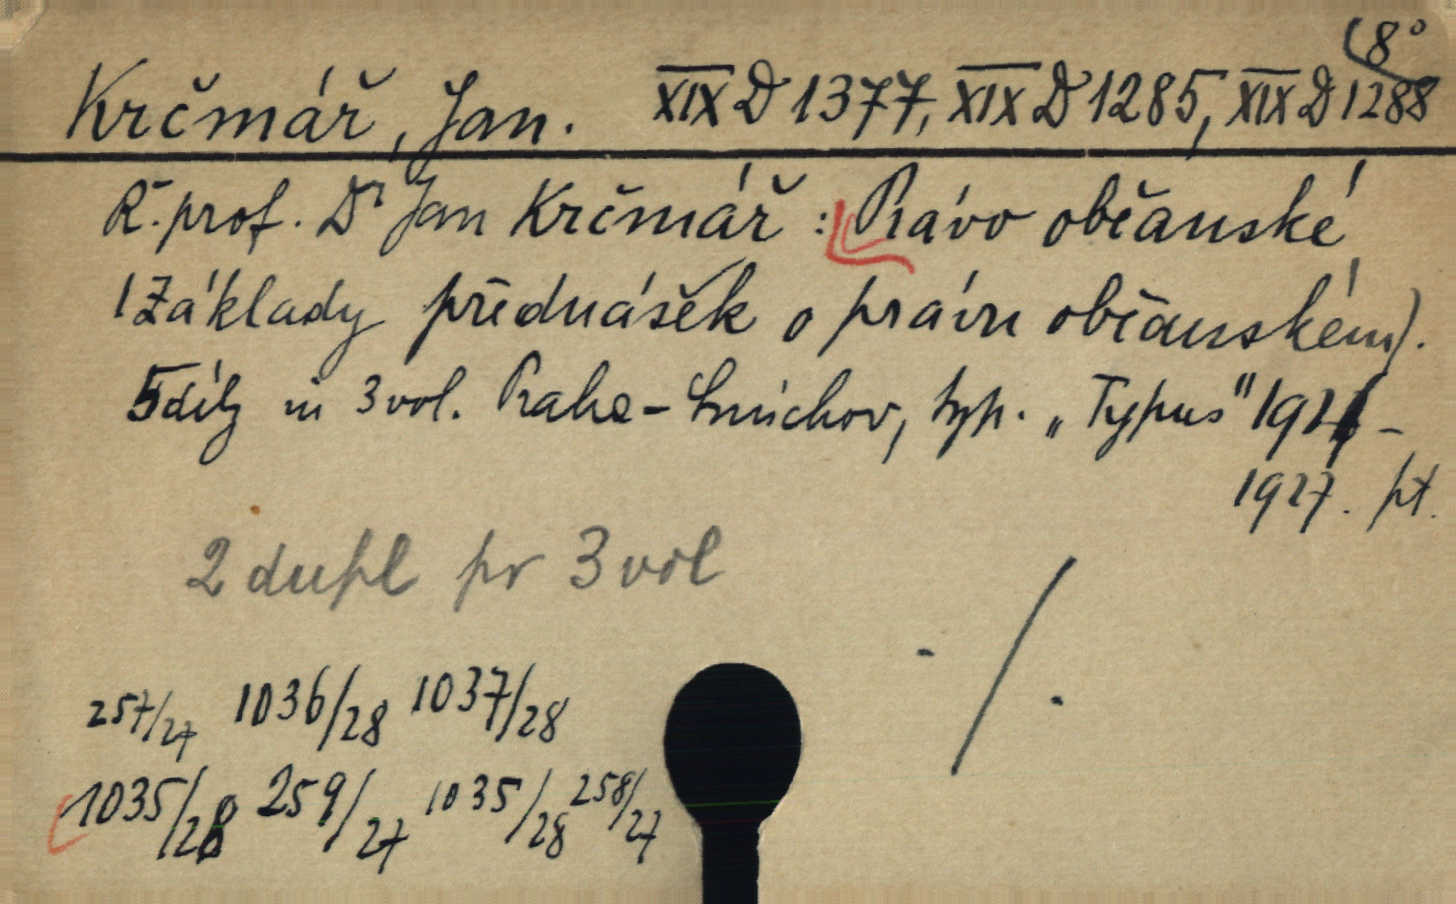 8°
Krčmář, Jan. XIX D 1377, XIX D 1285, XIX D 1288
Ř. prof. Dr Jan Krčmář : Právo občanské
(Základy přednášek o právu občanském).
5 díly in 3 vol. Praha - Smíchov, typ. „Typus" 192 -
1927. pt.
2 dupl pr 3 vol
-/.
257/27 1036/28 1037/28
1035/28 259/27 1035/28 258/27